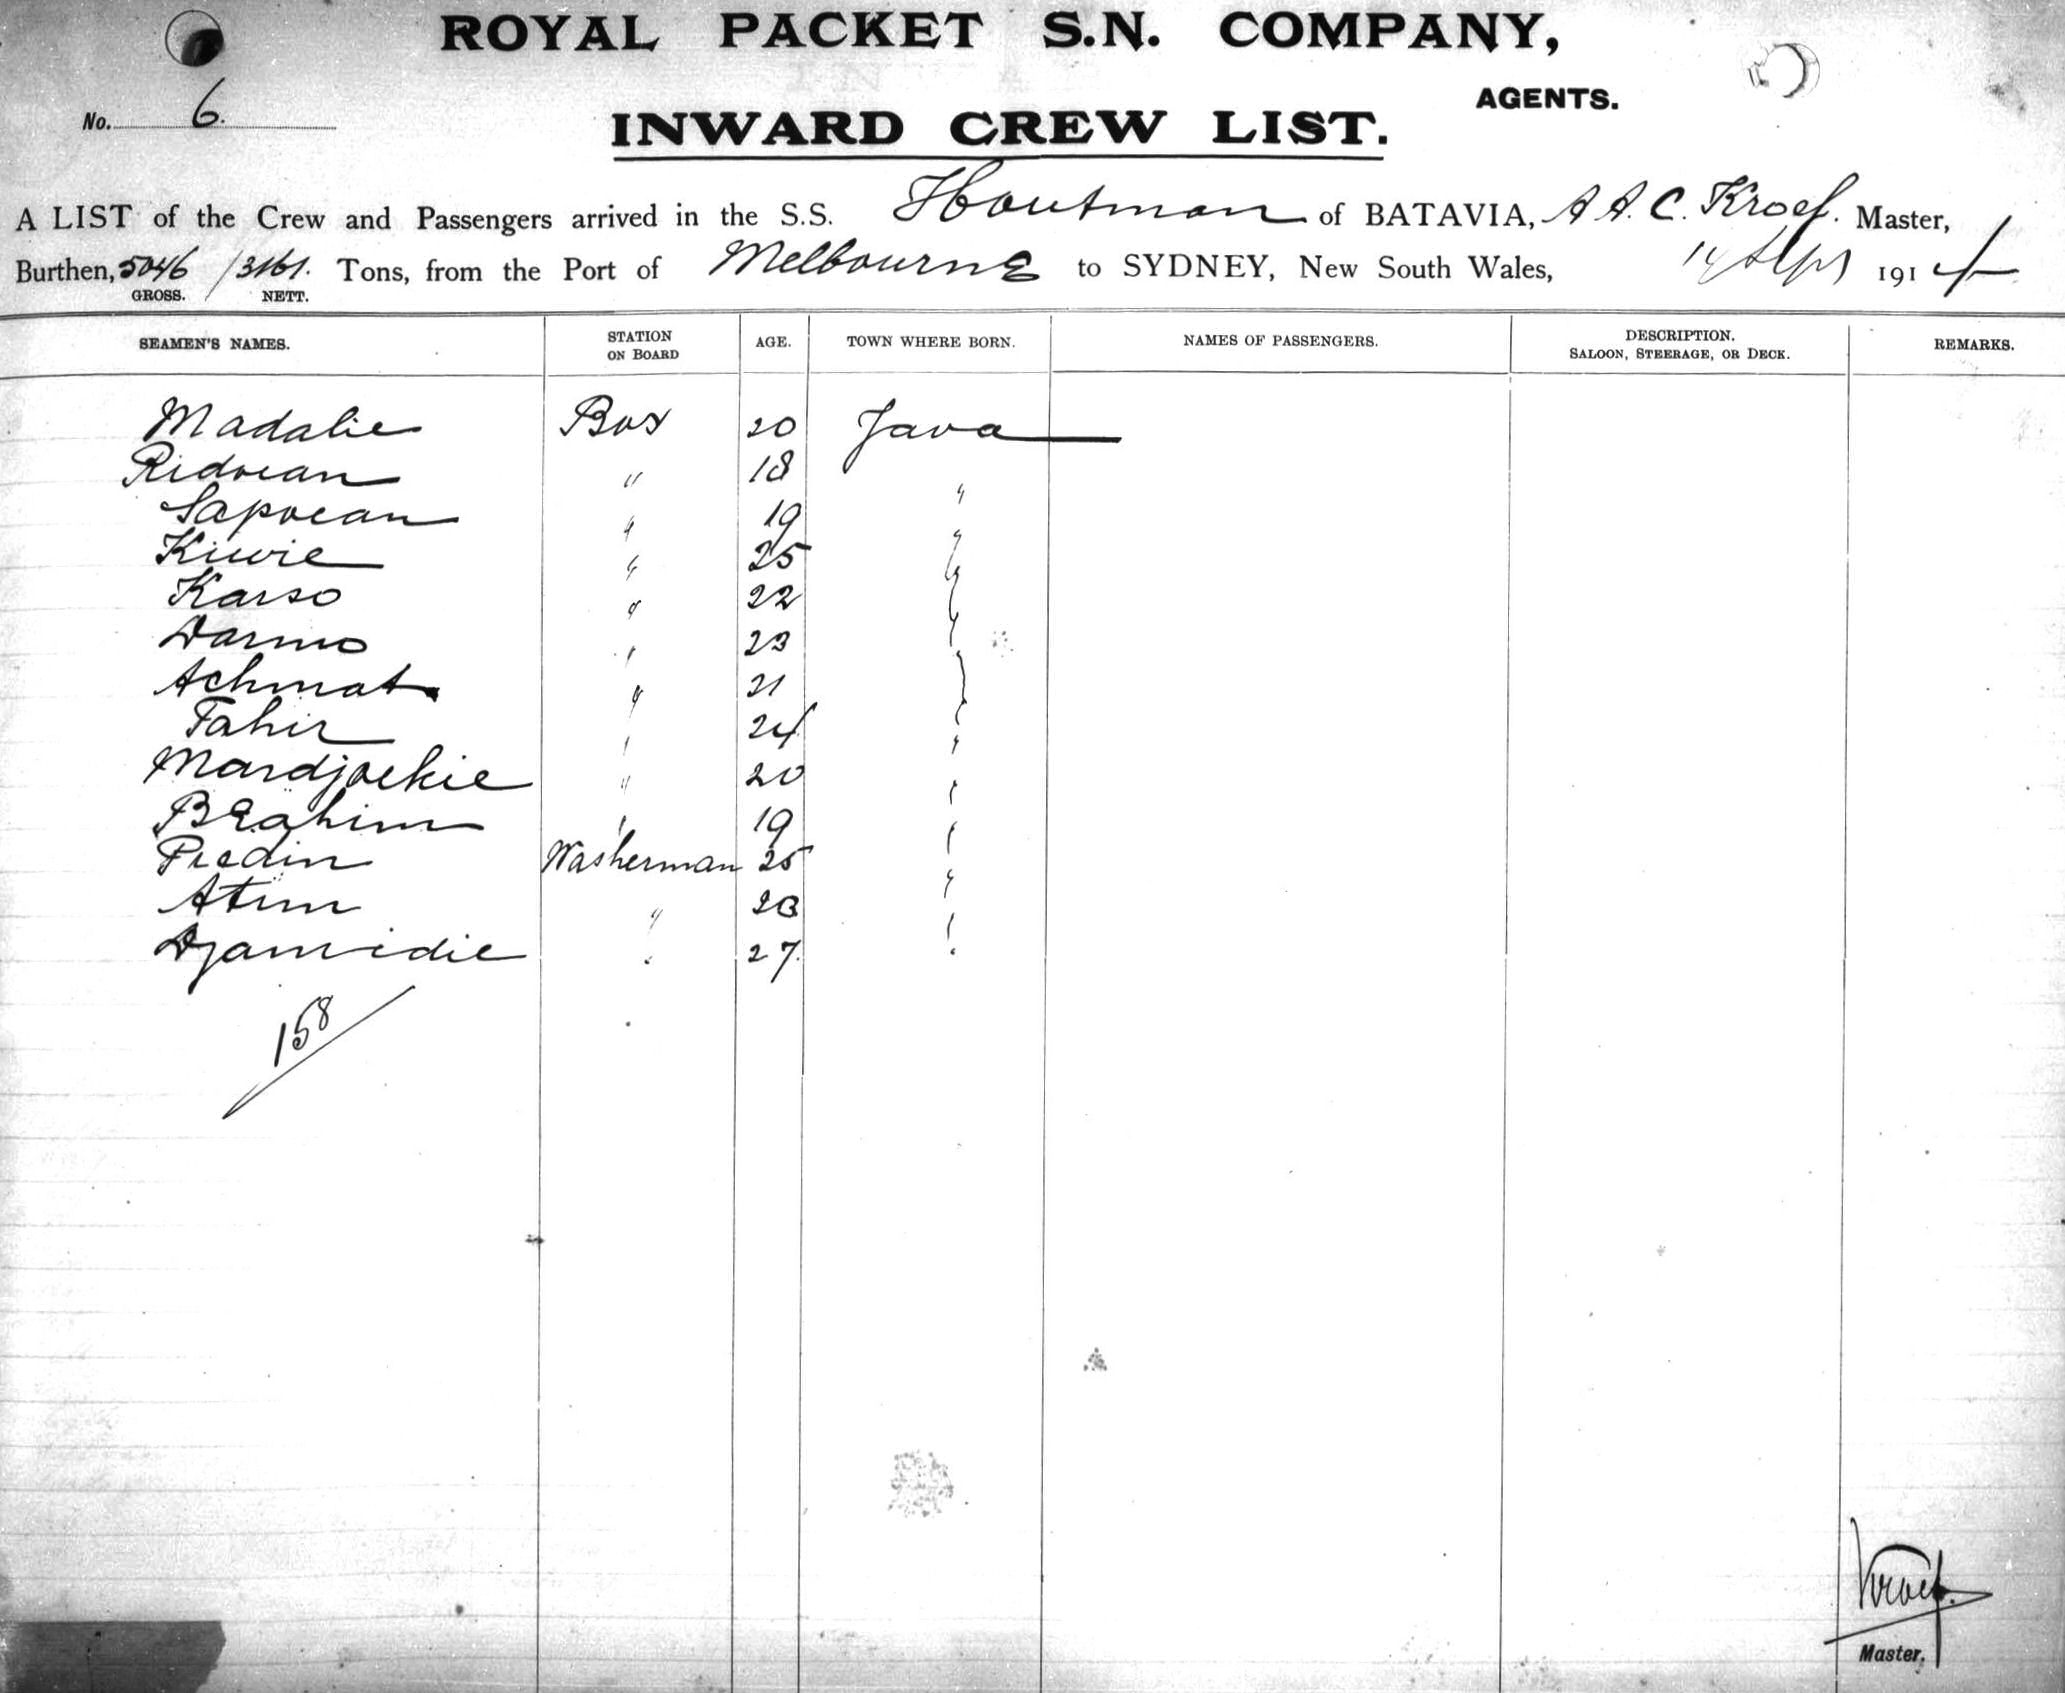 ROYAL PACKET S.N. COMPANY,
AGENTS.
No. 6.
INWARD CREW LIST.
A LIST of the Crew and Passengers arrived in the S.S. Houtman of BATAVIA, A A. C. Kroef. Master,
Burthen, 5046 / 3161. Tons, from the Port of Melbourne to SYDNEY, New South Wales, 14 Sept 1914
GROSS. NETT.
SEAMEN'S NAMES. STATION ON BOARD AGE. TOWN WHERE BORN. NAMES OF PASSENGERS. DESCRIPTION. SALOON, STEERAGE, OR DECK. REMARKS.
Madalie Boy 20 Java
Ridoean " 18 "
Sapoean " 19 "
Kiwie " 25 "
Karso " 22 "
Darmo " 23 "
Achmat " 21 "
Tahir " 24 "
Mardjoekie " 20 "
Brahim " 19 "
Washerman 25 "
" 23 "
Djamidie " 27. "
158
Kroef.
Master.